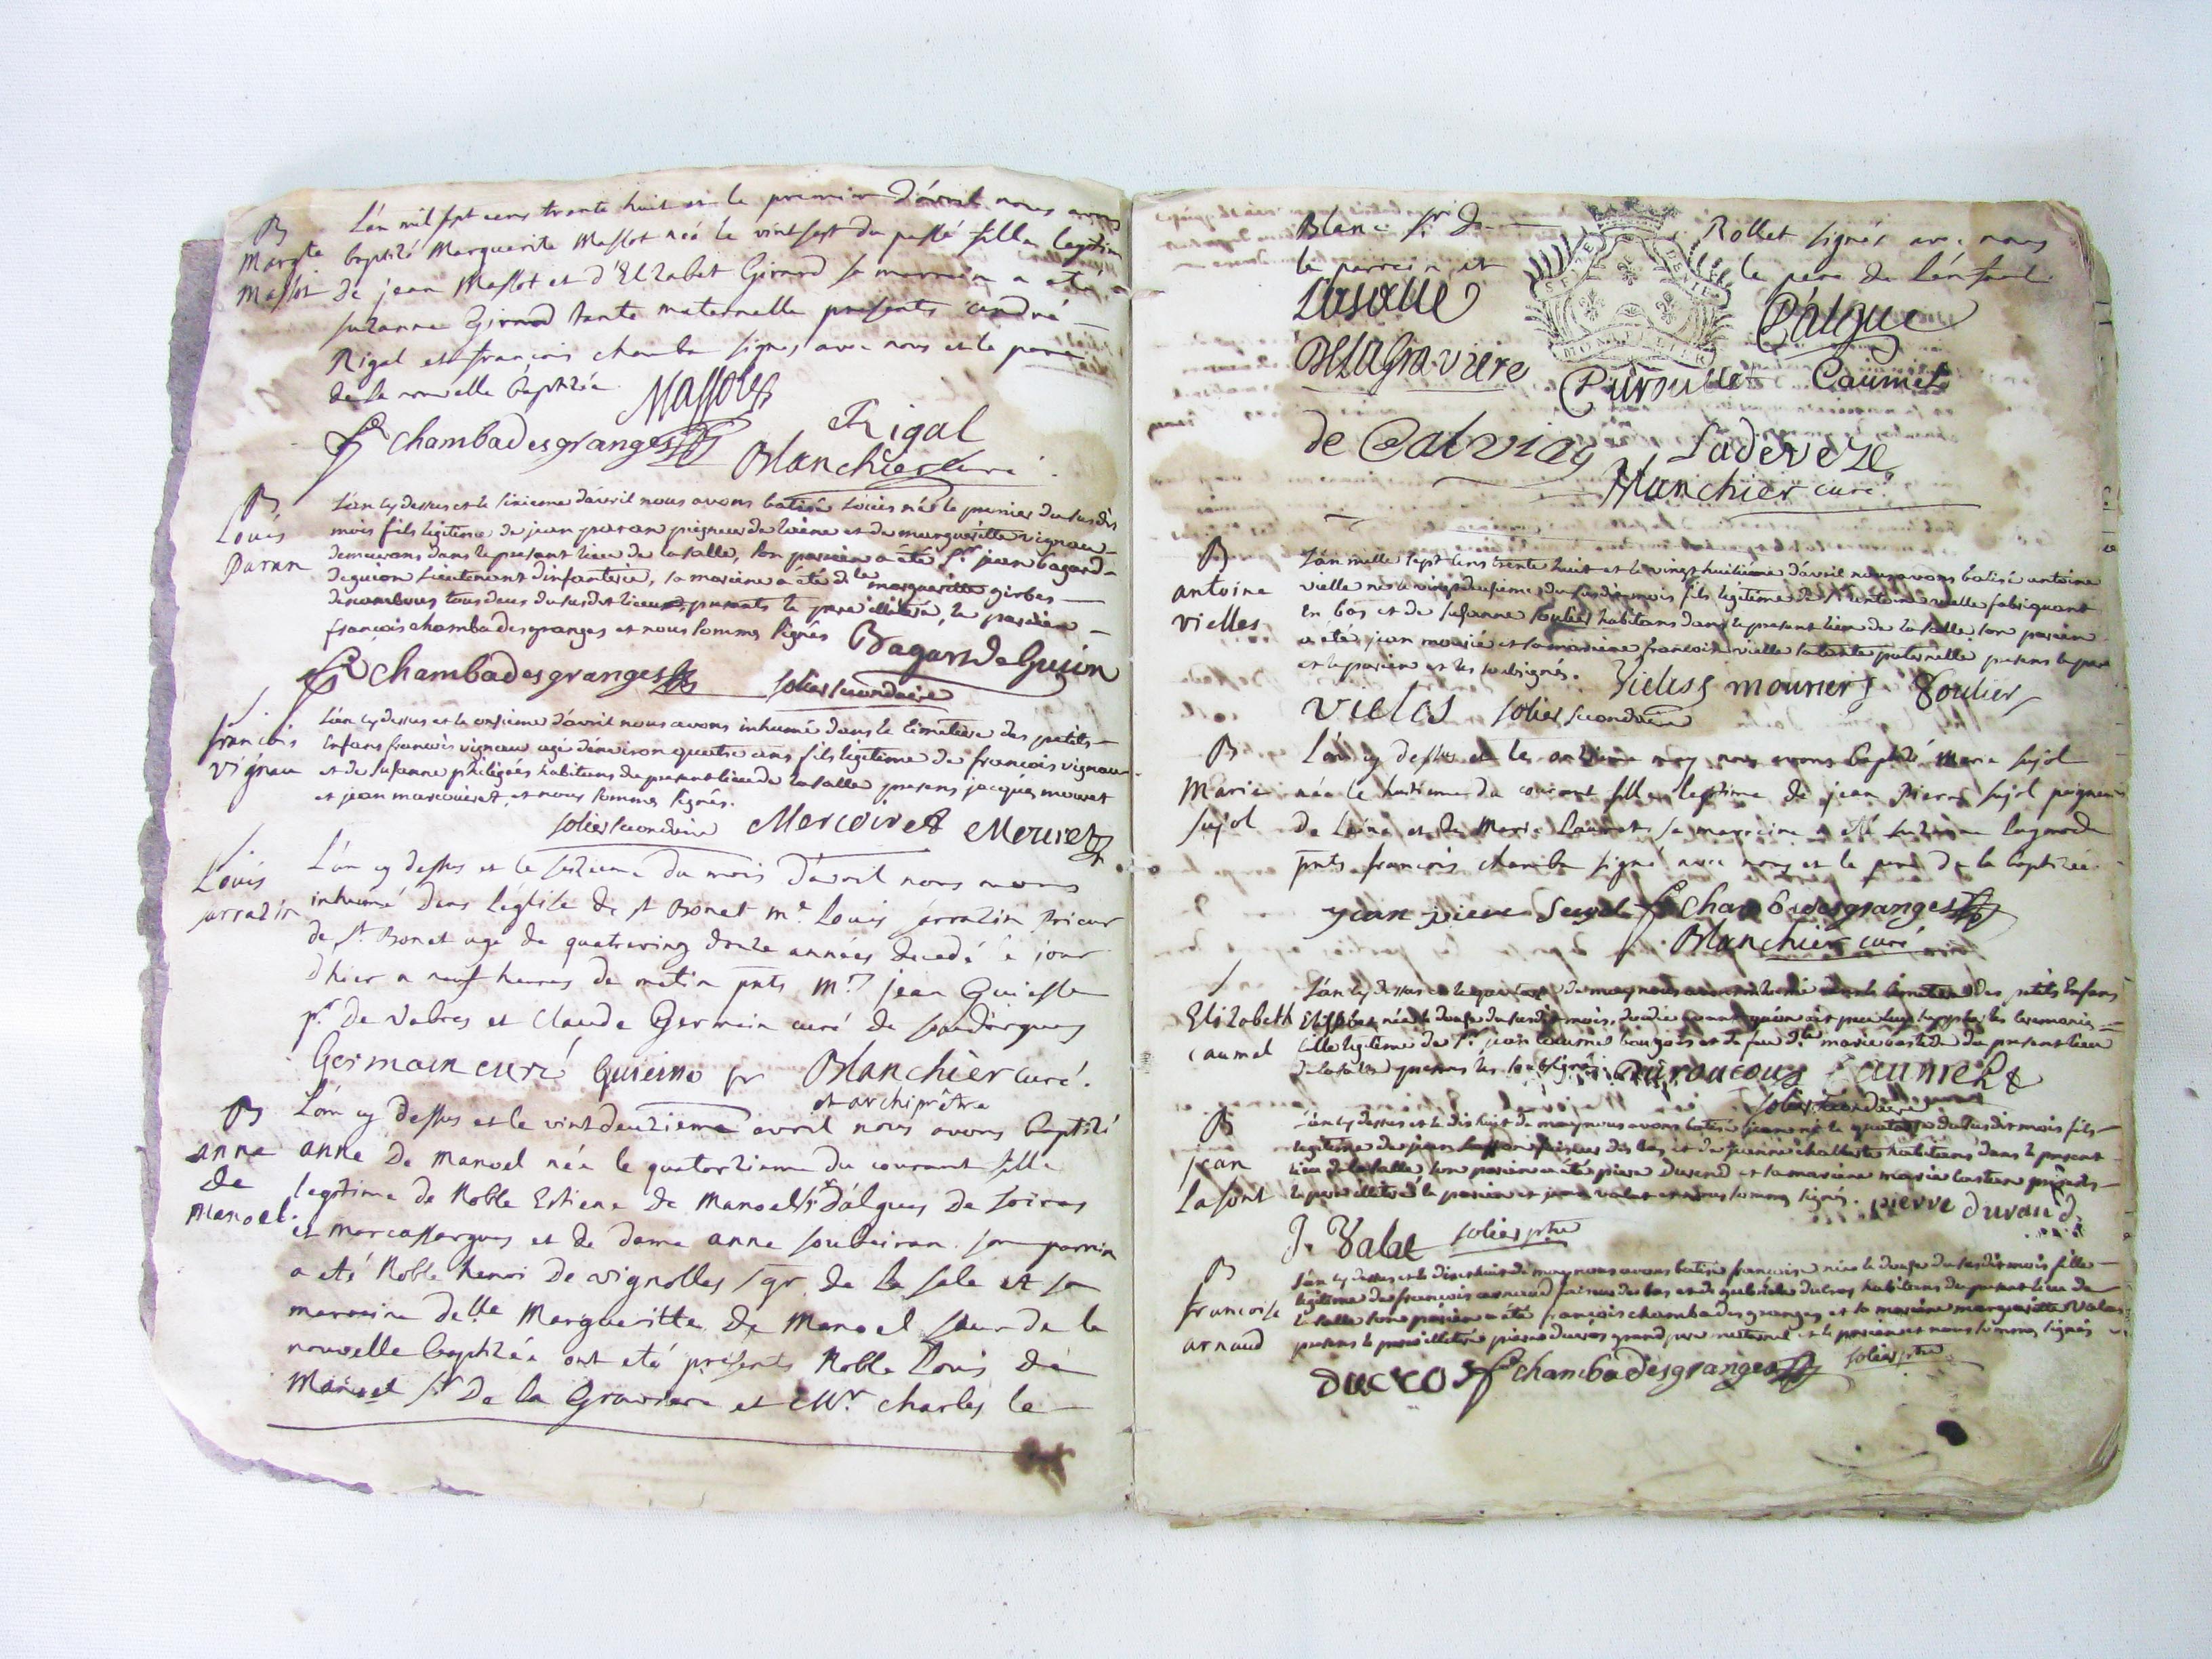 B L'án mil sept cens trente huit et le premier d'ávril nous avons
Margte baptizé Marguerite Massot neé le vint sept du passé fille legitime
Massot de jean Massot et d'Elzabet Girard sa marraine a eté
suzanne Girard tante maternelle presents andré
Rigal et françois chamba signes avec nous et le pere
de la nouvelle baptizée. Massot
fs chambadesgranges Rigal
Blanchier curé
B L'án cy dessus et le sixieme d'ávril nous avons batisé Louis né le premier du susdit
Louis mois fils légitime de jean paran peigneur de laine et de margueritte vignau
Paran demeurans dans le present lieu de lasalle, son parrein a été Sr jean bagard
deguion Lieutenant d'infanterie, sa marraine a été dlle margueritte girbes
descombous tous deux du susdit lieu presents le pere illiteré, le parrein
françois chambadesgranges et nous sommes signés Bagard de Guion
fs chambadesgranges solier secondaire
françois L'án cy dessus et le onsieme d'ávril nous avons inhumé dans le Cimetiere des petits
vignau Enfans françois vignau agé d'environ quatre ans fils légitime de françois vignau
et de susanne habitans du present lieu de lasalle presens jacques mouret
et jean marcoiret, et nous sommes signés.
solier secondaire Mercoiret Mouret
Louis L'án cy dessus et le seszieme du mois d'ávril nous avons
sarrazin inhumé dans l'églize de st Bonet me Louis sarrazin Prieur
de st Bonet agé de quatreving douze années decedé le jour
d'hier a neuf heures de matin pnts mr jean
pr de Vabres et Claude Germain curé de soudorgues
Germain curé pr Blanchier curé.
et archiprêtre
B L'án cy dessus et le vint deuzieme avril nous avons baptizé
anne anne de Manoel née le quatorzieme du courant fille
de legitime de Noble Estiene de Manoel sr d'álgues de soiras
Manoel. et marcassargues et de dame anne soubeiran. son parrin
a eté Noble henri de vignolles sgr. de la sale et sa
marraine delle Margueritte de Manoel seur de la
nouvelle baptizée ont eté présents Noble Louis de
Manoel sr De la Graviere et Mr. charles le
Blanc sr de Rollet signés avec nous
le parrein et le pere de l'énfant.
Lasalle D'algue
DELAGraviere Caumel
de Calviay Ladeveze
Blanchier curé
B L'án mille sept cens trente huit et le vingt huitième d'ávril nous avons batisé antoine
antoine vielle né le vingt deusieme du susdit mois fils légitime de sr antoine vielle fabriquant
vielles En bas et de susanne soulier habitans dans le present lieu de lasalle son parrein
a été jean mourié et sa marraine françoise vielle sa tante paternelle presens le pere
et le parrein et les soubsignés. Vieles mourier Soulier
VIELES solier secondaire
B L'án cy dessus et le onzieme may nous avons baptizé Marie sujol
Marie née le huitieme du courant fille legitime de jean Pierre sujol peigneur
sujol de Laine et de Marie Lauret sa marraine a eté suzanne
pnts françois chamba signé avec nous et le pere de la baptizée.
jean piere Sujol fs Chambadesgranges
Blanchier curé
L'án cy dessus et le de may nous avons inhumé dans le cimetiere des petits Enfans
Elizabeth née le douse du susdit mois,
caumel fille legitime de sr jean Caumel bourgeois et de feu dlle marie du present lieu
de lasalle presens les soubsignés. Caumel
solier secondaire
B L'án cy dessus et le dix huit de may nous avons batisé jean né le quatorse du susdit mois fils
jean legitime de jean laffon faiseur des bas et de habitans dans le present
Lafont lieu de lasalle, son parrein a été piere durand et sa marraine marie presents
le pere illiteré le parrein et jean valat et nous sommes signés. pierre durand
J. Valat solier ptre
B L'án cy dessus et le dixe huit de may nous avons batisé françoise née le douse du susdit mois fille
francoise légitime de françois arnaud faiseur de bas et de gabriele ducros habitans du present lieu de
arnaud lasalle son parrein a été françois chambadesgranges et sa marraine margueritte Valat
presens le pere illiteré piere ducros grand pere maternel et le parrein et nous sommes signés
ducros fs chambadesgranges solier ptre